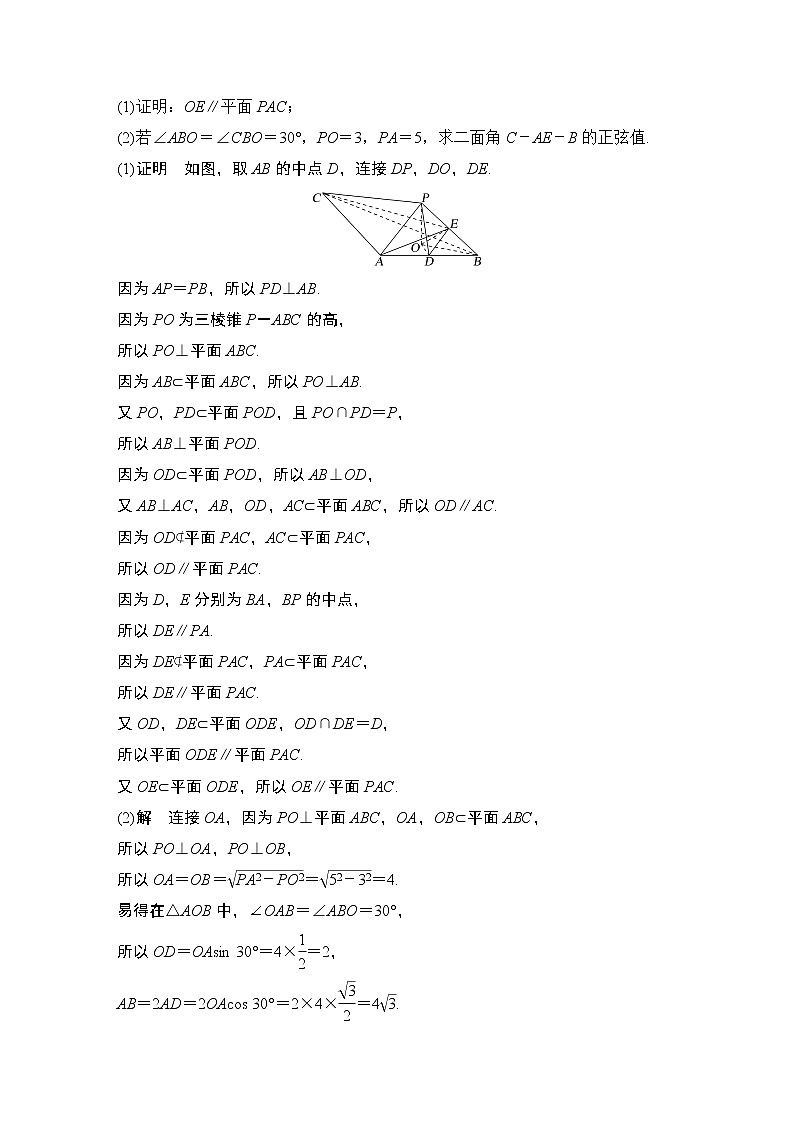 (1)证明：OE∥平面PAC；
(2)若∠ABO＝∠CBO＝30°，PO＝3，PA＝5，求二面角C－AE－B的正弦值.
(1)证明　如图，取AB的中点D，连接DP，DO，DE.
C P E O A D B
因为AP＝PB，所以PD⊥AB.
因为PO为三棱锥P－ABC的高，
所以PO⊥平面ABC.
因为AB⊂平面ABC，所以PO⊥AB.
又PO，PD⊂平面POD，且PO∩PD＝P，
所以AB⊥平面POD.
因为OD⊂平面POD，所以AB⊥OD，
又AB⊥AC，AB，OD，AC⊂平面ABC，所以OD∥AC.
因为OD⊄平面PAC，AC⊂平面PAC，
所以OD∥平面PAC.
因为D，E分别为BA，BP的中点，
所以DE∥PA.
因为DE⊄平面PAC，PA⊂平面PAC，
所以DE∥平面PAC.
又OD，DE⊂平面ODE，OD∩DE＝D，
所以平面ODE∥平面PAC.
又OE⊂平面ODE，所以OE∥平面PAC.
(2)解　连接OA，因为PO⊥平面ABC，OA，OB⊂平面ABC，
所以PO⊥OA，PO⊥OB，
所以OA＝OB＝√(PA²－PO²)＝√(5²－3²)＝4.
易得在△AOB中，∠OAB＝∠ABO＝30°，
所以OD＝OAsin 30°＝4×1/2＝2，
AB＝2AD＝2OAcos 30°＝2×4×√3/2＝4√3.